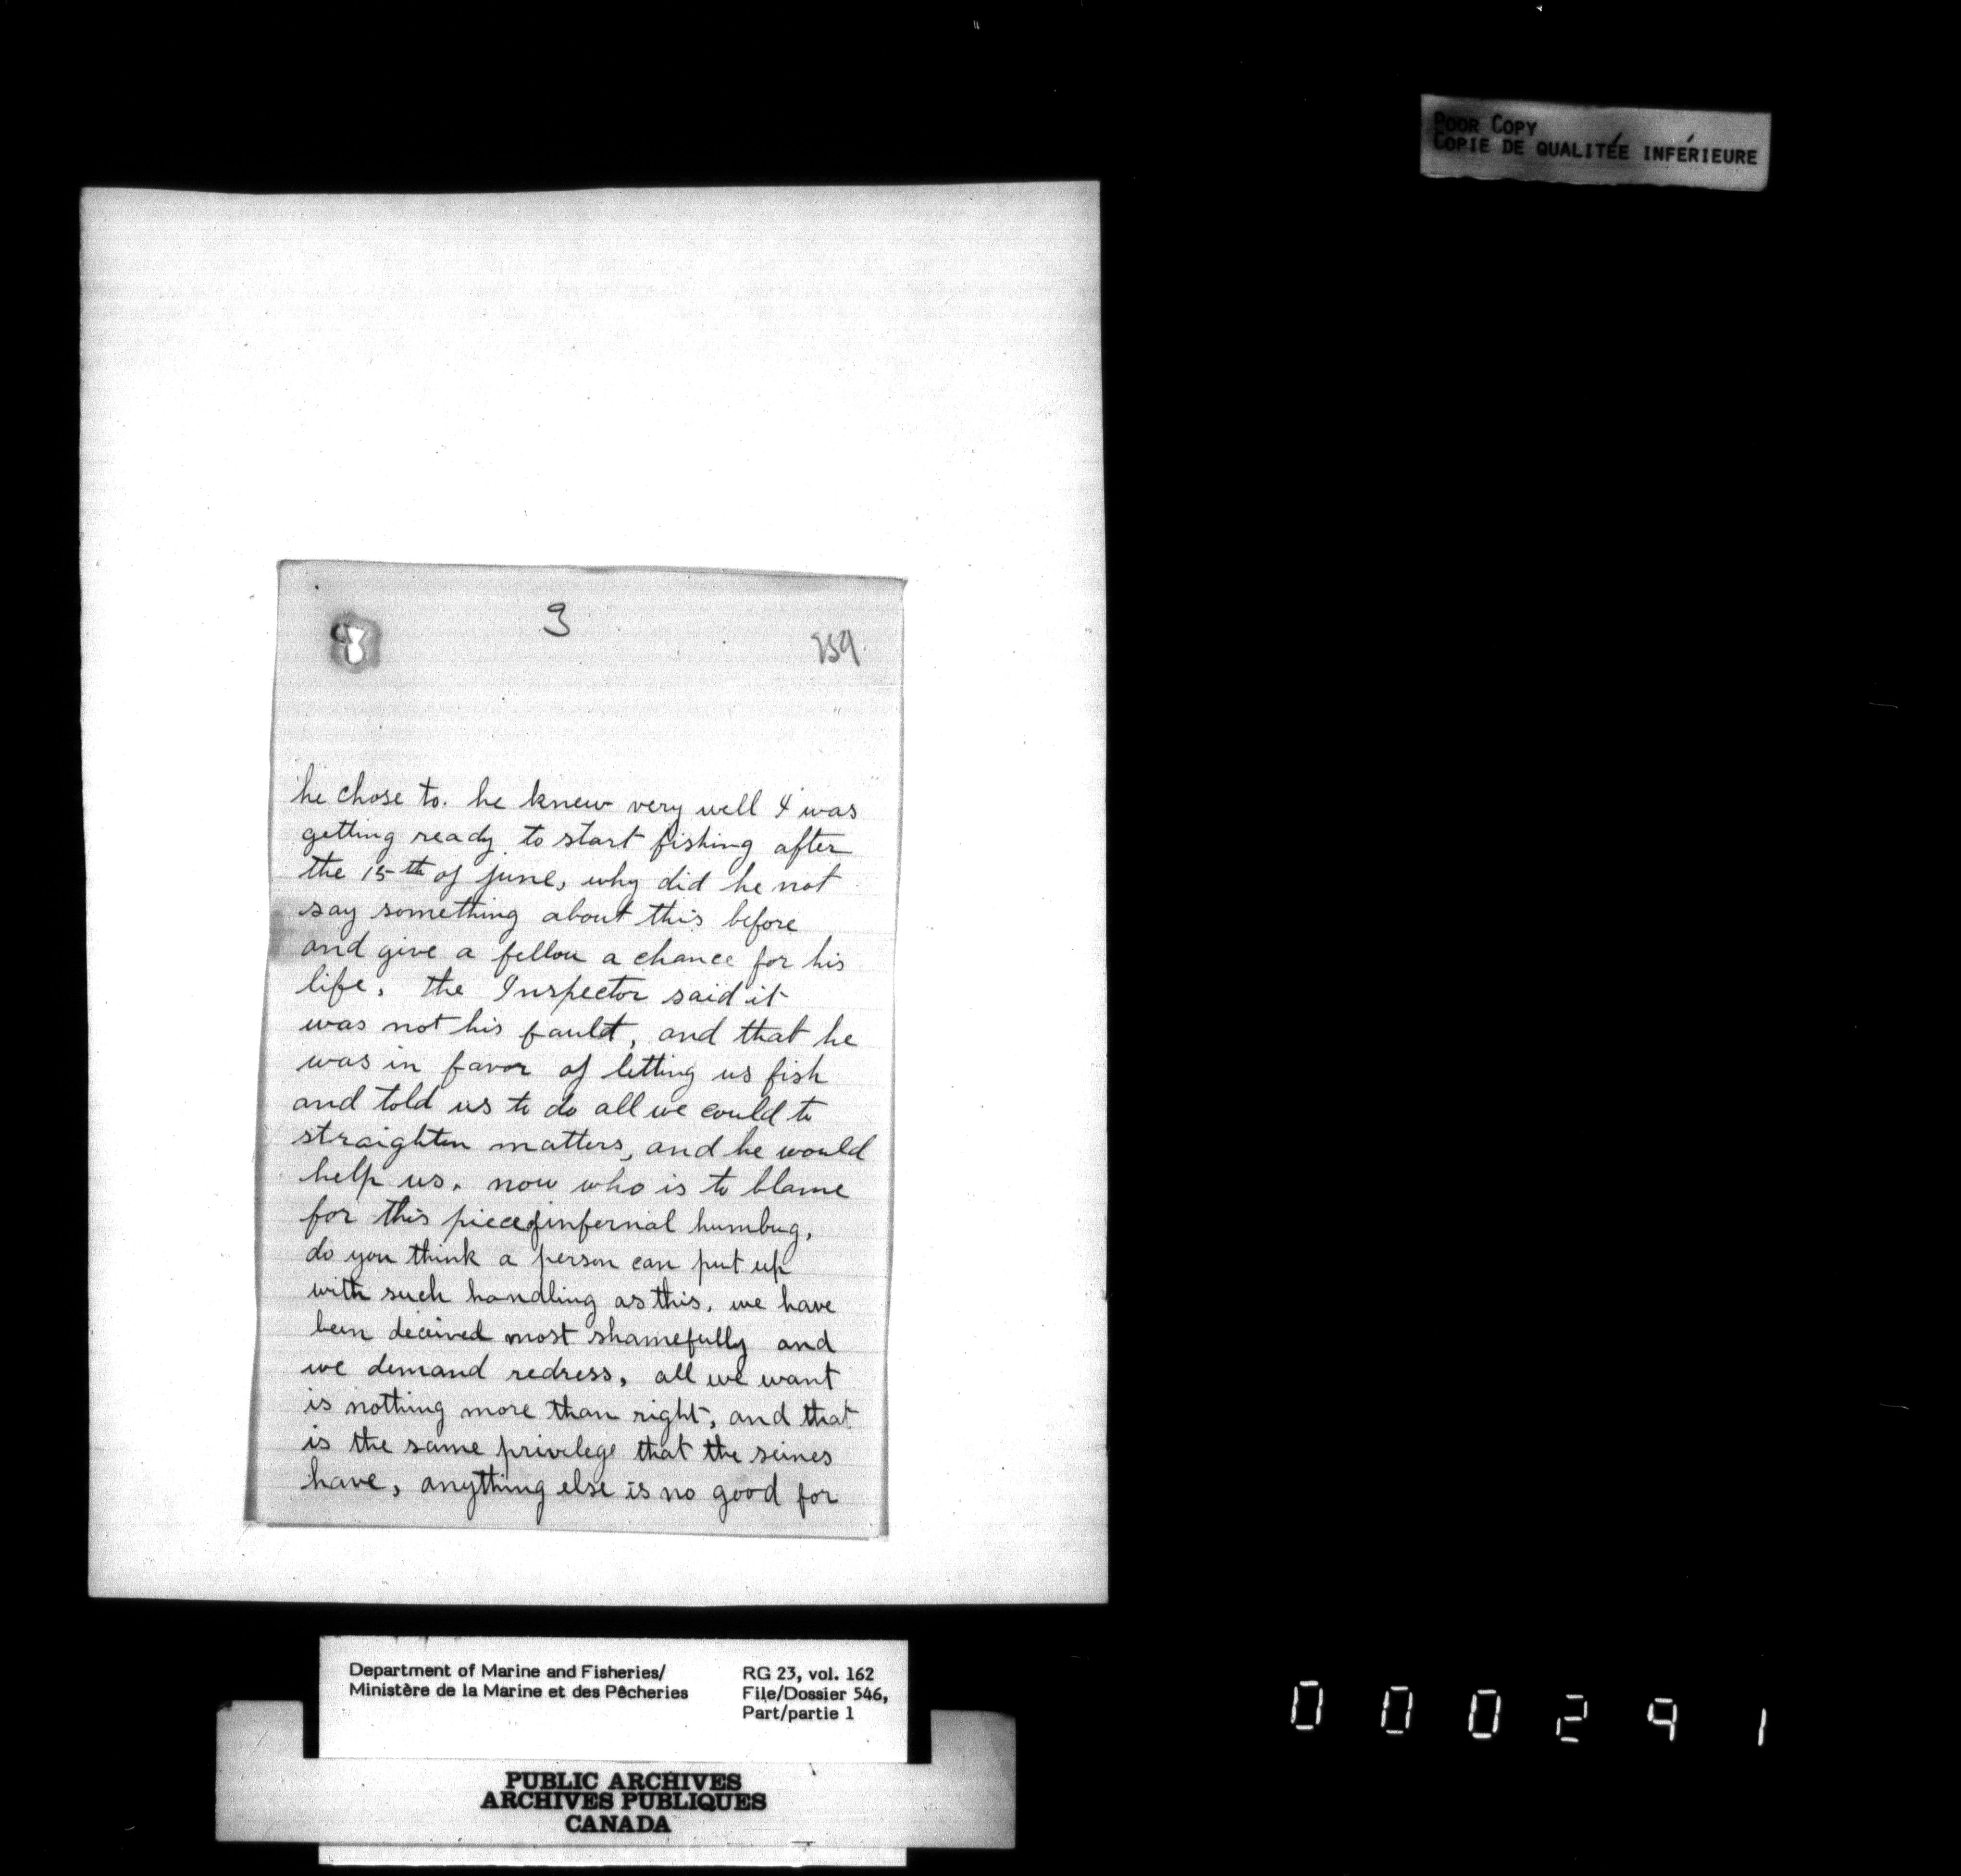 POOR COPY
COPIE DE QUALITÉE INFÉRIEURE
3
259
he chose to. he knew very well I was
getting ready to start fishing after
the 15th of june, why did he not
say something about this before
and give a fellow a chance for his
life. the Inspector said it
was not his fault, and that he
was in favor of letting us fish
and told us to do all we could to
straighten matters, and he would
help us. now who is to blame
for this piece of infernal humbug,
do you think a person can put up
with such handling as this. we have
been deceived most shamefully and
we demand redress, all we want
is nothing more than right, and that
is the same privilege that the seines
have, anything else is no good for
Department of Marine and Fisheries/
Ministère de la Marine et des Pêcheries
RG 23, vol. 162
File/Dossier 546,
Part/partie 1
PUBLIC ARCHIVES
ARCHIVES PUBLIQUES
CANADA
000291